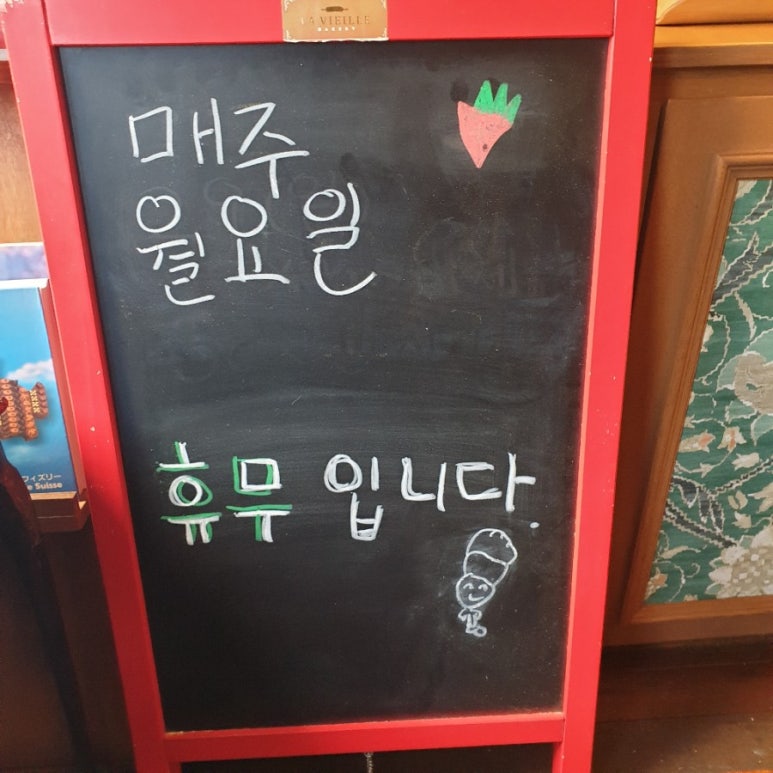 LA VIEILLE
BAKERY
매주
월요일
휴무 입니다.
フィズリー
e Suisse